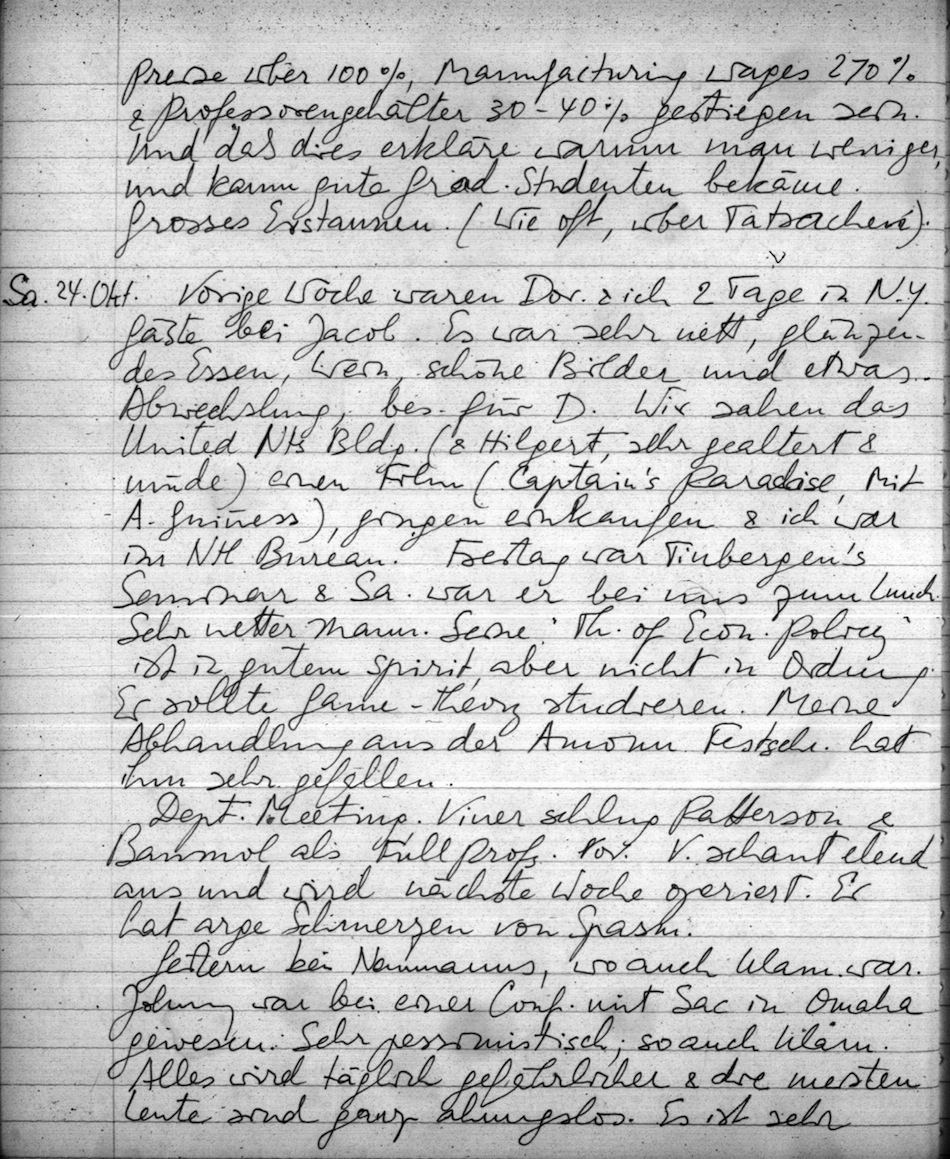 Preise über 100%, Manufacturing wages 270%
& Professorengehälter 30-40% gestiegen sein.
Und daß dies erkläre warum man weniger,
und kaum gute Grad. Studenten bekäme.
Grosses Erstaunen. (Wie oft, über Tatsachen!).
Sa. 24. Okt. Vorige Woche waren Dor. & ich 2 Tage in N.Y.
Gäste bei Jacob. Es war sehr nett, glänzen-
des Essen, Wein, schöne Bilder und etwas
Abwechslung, bes. für D. Wir sahen das
United Nts Bldg. (& Hilgert, sehr gealtert &
müde) einen Film (Captain's Paradise, mit
A. Guiness), gingen einkaufen & ich war
im NH Bureau. Freitag war Tinbergen's
Seminar & Sa. war er bei uns zum Lunch.
Sehr netter Mann. Seine "Th. of Econ. Policy"
ist in gutem Spirit, aber nicht in Ordnung.
Er sollte Game-theory studieren. Meine
Abhandlung aus der Amonn Festschr. hat
ihm sehr gefallen.
Dept. Meeting. Viner schlug Patterson &
Baumol als Full Prof. vor. V. schaut elend
aus und wird nächste Woche operiert. Er
hat arge Schmerzen von Spasm.
Gestern bei Neumanns, wo auch Ulam war.
Johnny war bei einer Conf. mit Sac in Omaha
gewesen. Sehr pessimistisch; so auch Ulam.
Alles wird täglich gefährlicher & die meisten
Leute sind ganz ahnungslos. Es ist sehr